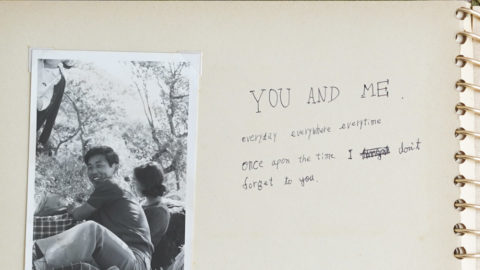 YOU AND ME.
everyday everywhere everytime
once apon the time I don't
forget to you.